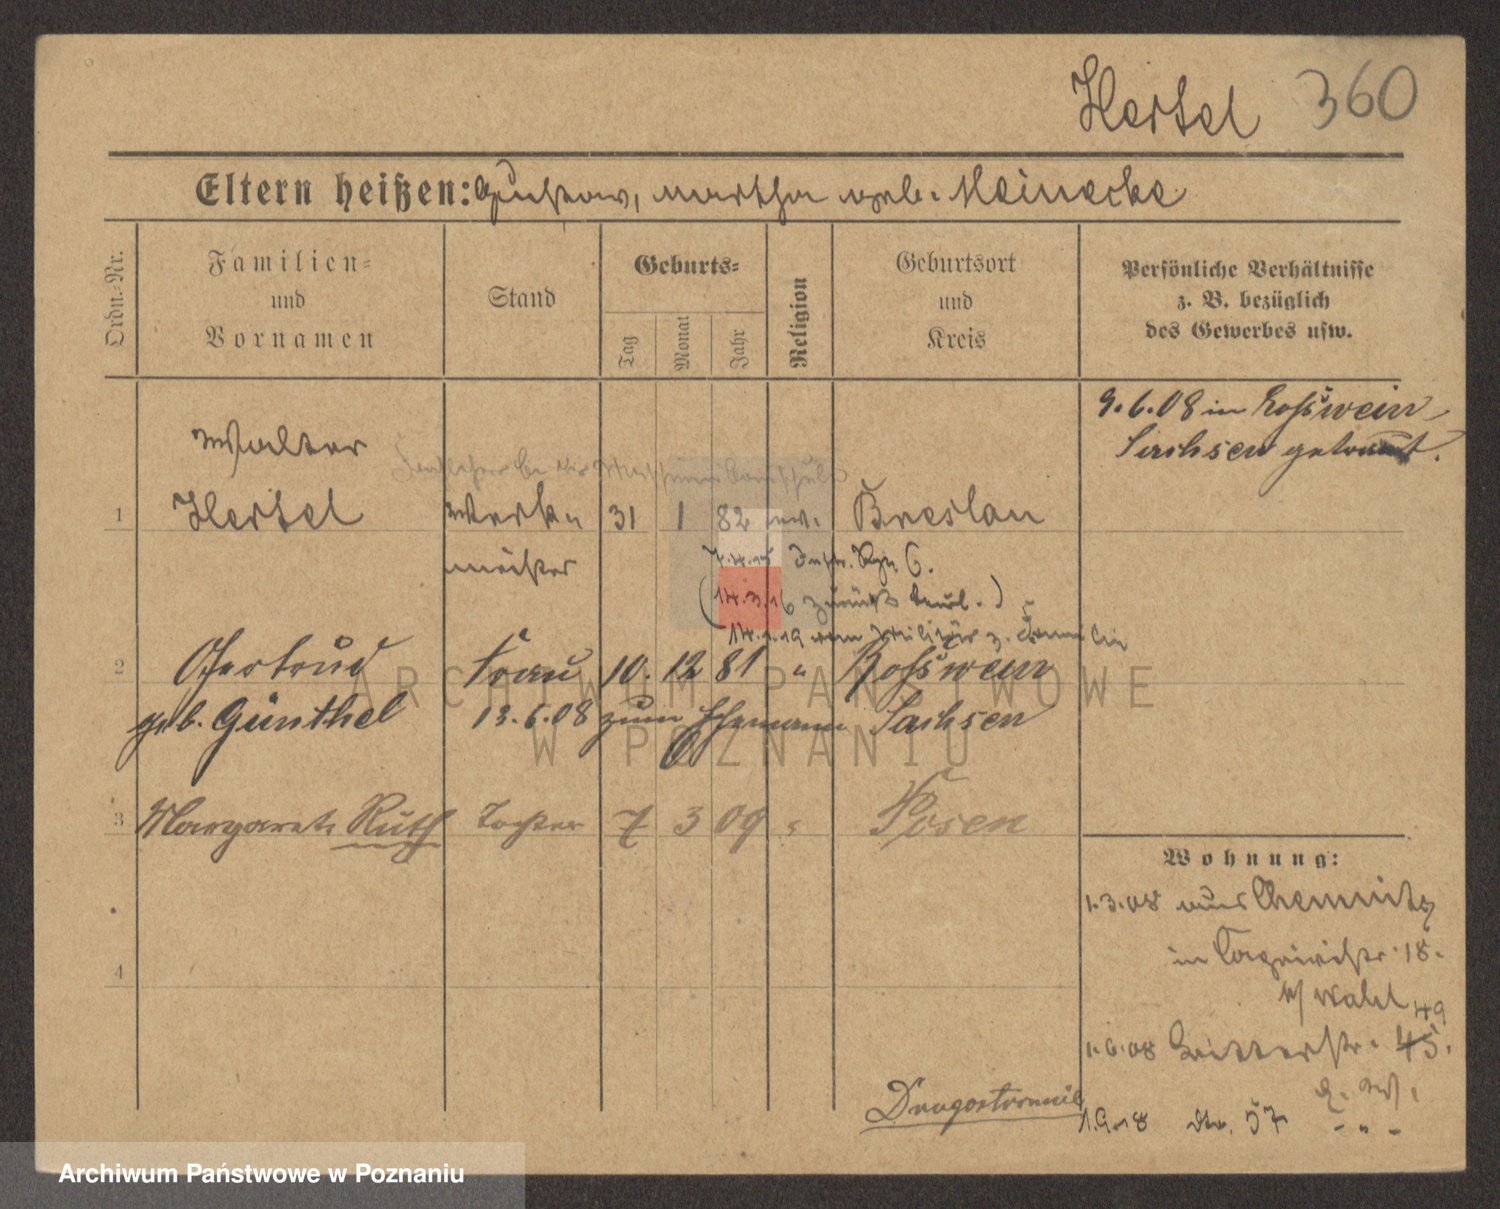 Hertel 360
Eltern heißen: Gustav, Martha geb. Meinecke
Ordn.-Nr.
Familien-
und
Vornamen
Stand
Geburts-
Tag
Monat
Jahr
Religion
Geburtsort
und
Kreis
Persönliche Verhältnisse
z. B. bezüglich
des Gewerbes usw.
9.6.08 in Rosswein
Sachsen getraut.
Walter
1 Hertel Werk- 31 1 82 ev. Breslau
meister
7.4.15 Inftr. Rgt 6.
(14.3.16 zurück beurl.)
14.1.19 vom Militär z. Familie
2 Gertrud Frau 10. 12 81 " Rosswein
geb. Günthel 13.6.08 zum Ehemann Sachsen
3 Margarete Ruth Tochter 7 3 09 " Posen
Wohnung:
1.3.08 aus Chemnitz
in 18.
b/ Wahl
49
1.6.08 Ritterstr. 45.
4
Dragostornik
1.9.18 dto. 57 - " -
ARCHIWUM PAŃSTWOWE
W POZNANIU
Archiwum Państwowe w Poznaniu